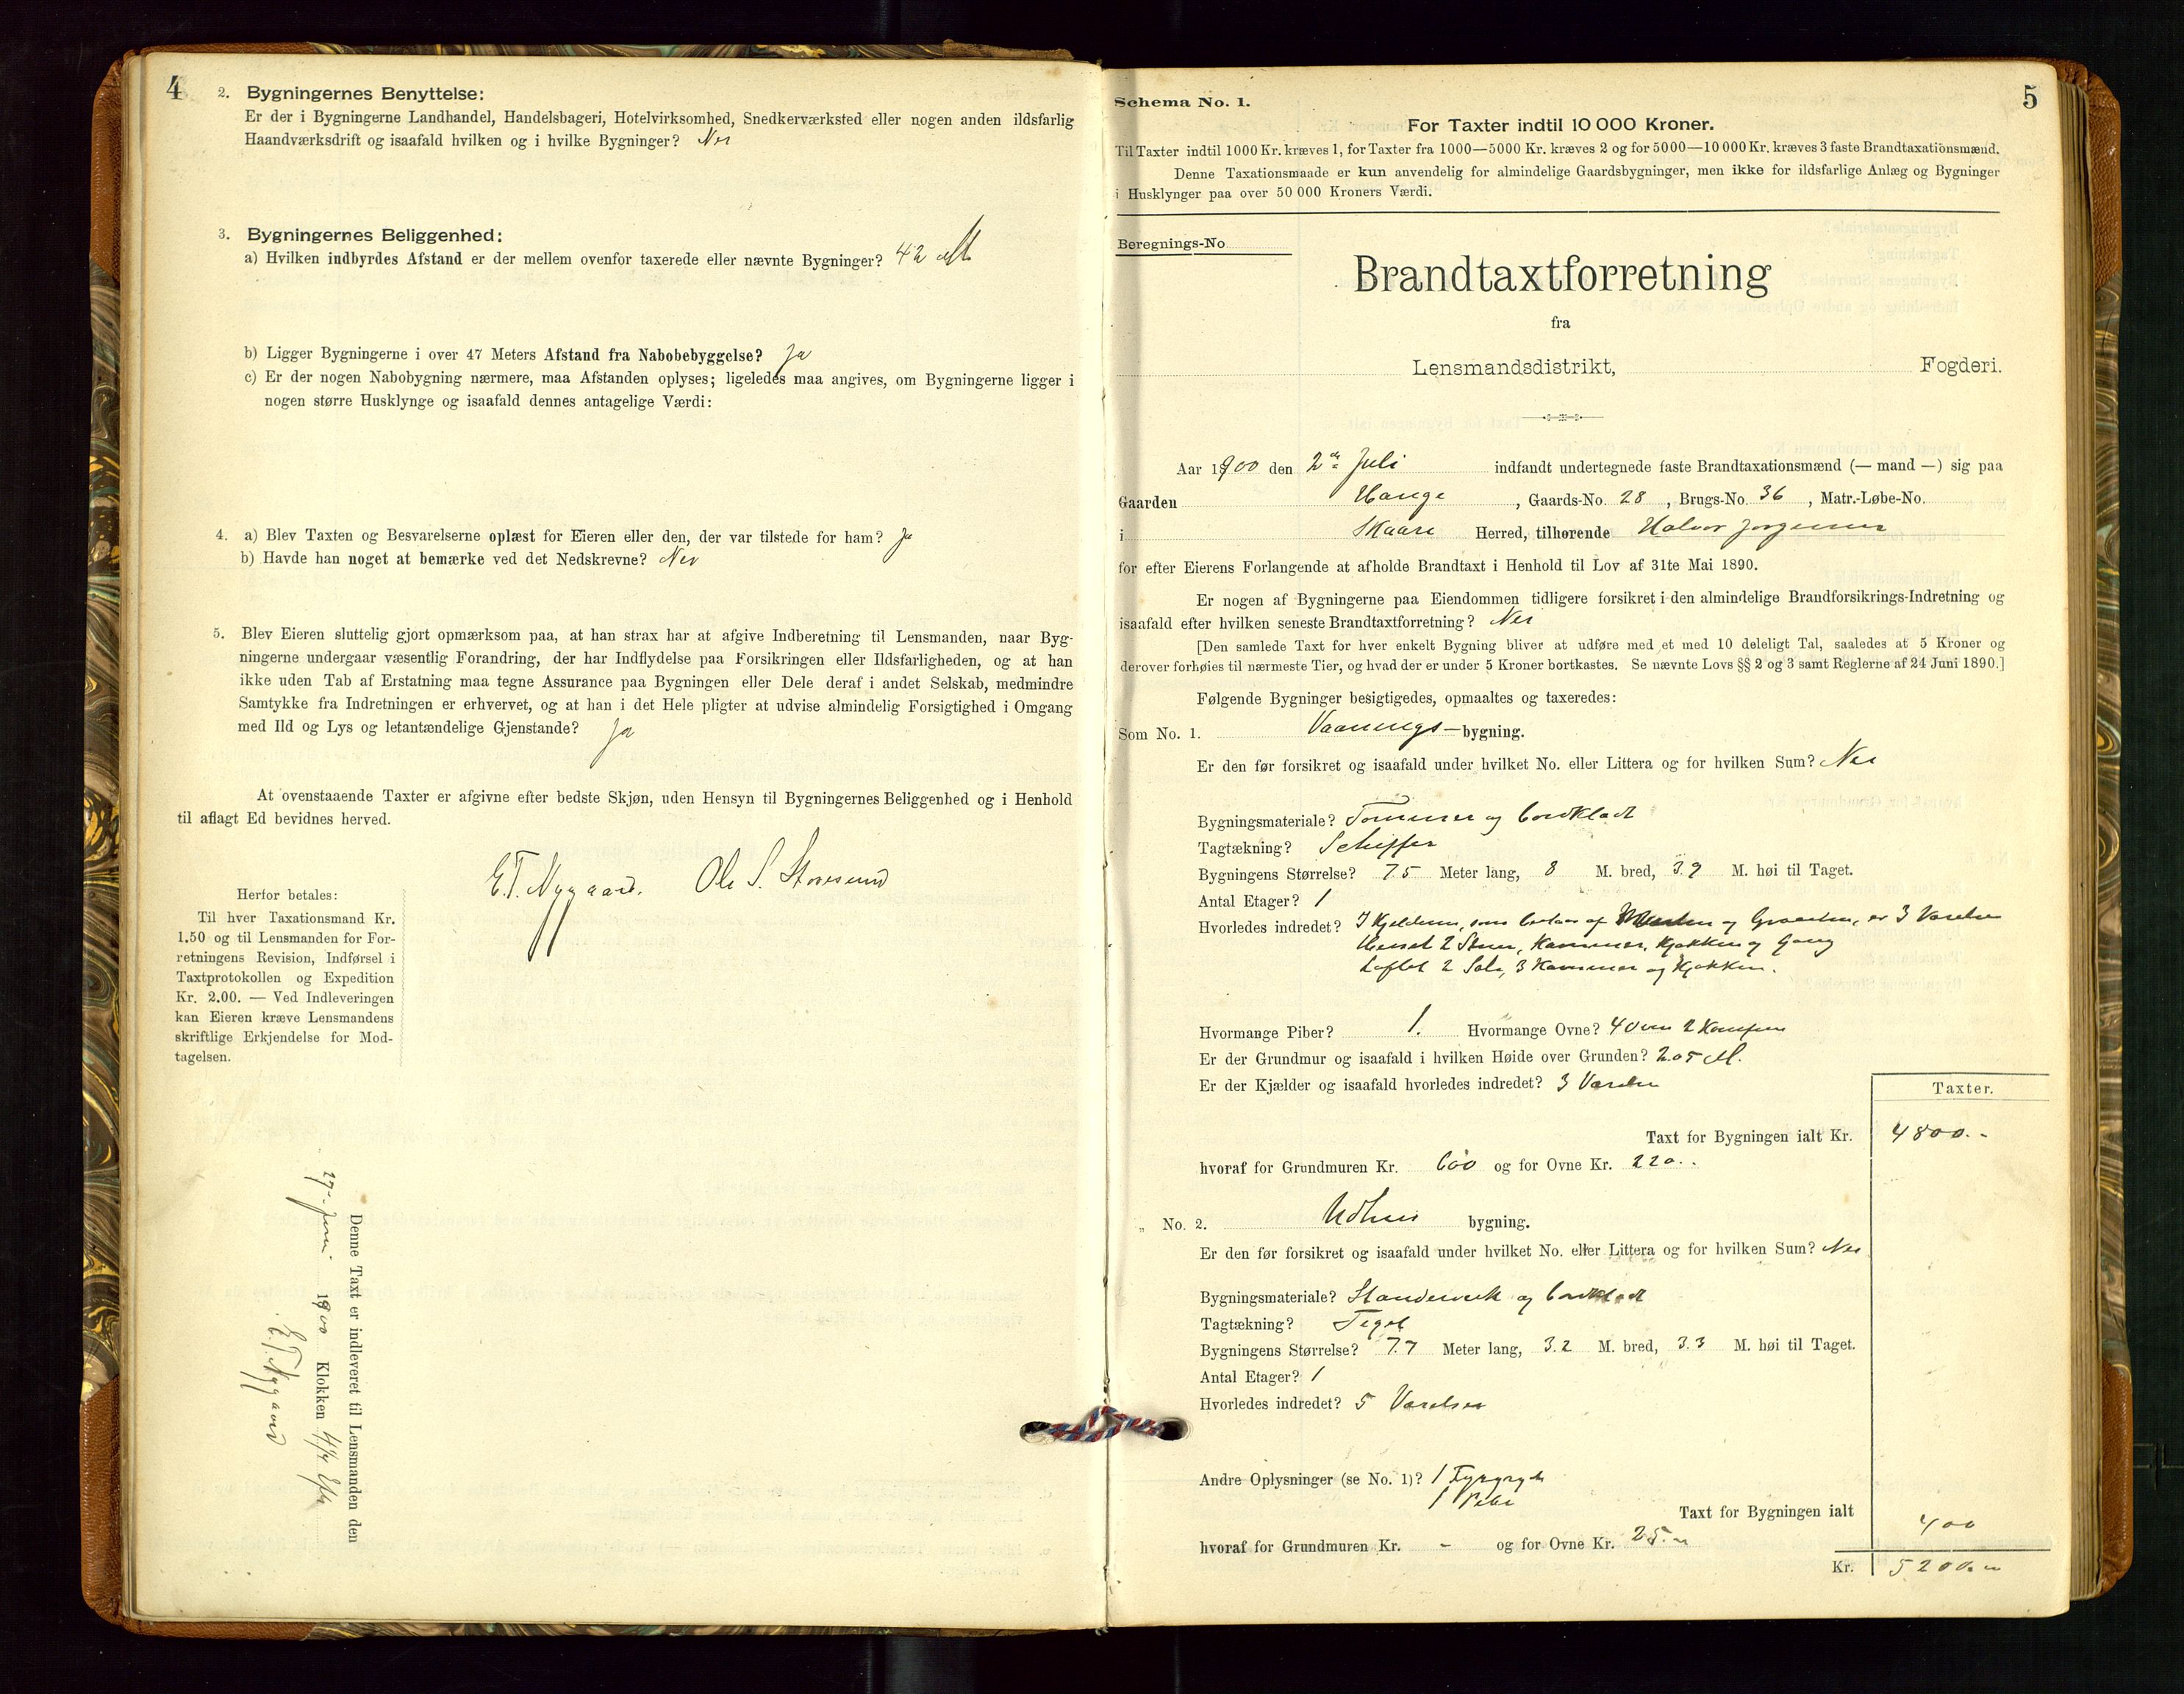 4
2. Bygningernes Benyttelse:
Er der i Bygningerne Landhandel, Handelsbageri, Hotelvirksomhed, Snedkerværksted eller nogen anden ildsfarlig
Haandværksdrift og isaafald hvilken og i hvilke Bygninger? Nei
3. Bygningernes Beliggenhed:
a) Hvilken indbyrdes Afstand er der mellem ovenfor taxerede eller nævnte Bygninger? 42 M
b) Ligger Bygningerne i over 47 Meters Afstand fra Nabobebyggelse? Ja
c) Er der nogen Nabobygning nærmere, maa Afstanden oplyses; ligeledes maa angives, om Bygningerne ligger i
nogen større Husklynge og isaafald dennes antagelige Værdi:
4. a) Blev Taxten og Besvarelserne oplæst for Eieren eller den, der var tilstede for ham? Ja
b) Havde han noget at bemærke ved det Nedskrevne? Nei
5. Blev Eieren sluttelig gjort opmærksom paa, at han strax har at afgive Indberetning til Lensmanden, naar Byg-
ningerne undergaar væsentlig Forandring, der har Indflydelse paa Forsikringen eller Ildsfarligheden, og at han
ikke uden Tab af Erstatning maa tegne Assurance paa Bygningen eller Dele deraf i andet Selskab, medmindre
Samtykke fra Indretningen er erhvervet, og at han i det Hele pligter at udvise almindelig Forsigtighed i Omgang
med Ild og Lys og letantændelige Gjenstande? Ja
At ovenstaaende Taxter er afgivne efter bedste Skjøn, uden Hensyn til Bygningernes Beliggenhed og i Henhold
til aflagt Ed bevidnes herved.
E.T. Nygaard. Ole S. Storesund
Herfor betales:
Til hver Taxationsmand Kr.
1.50 og til Lensmanden for For-
retningens Revision, Indførsel i
Taxtprotokollen og Expedition
Kr. 2.00. — Ved Indleveringen
kan Eieren kræve Lensmandens
skriftlige Erkjendelse for Mod-
tagelsen.
Denne Taxt er indleveret til Lensmanden den
1900 Klokken
E.T. Nygaard
5
Schema No. 1.
For Taxter indtil 10 000 Kroner.
Til Taxter indtil 1000 Kr. kræves 1, for Taxter fra 1000—5000 Kr. kræves 2 og for 5000—10 000 Kr. kræves 3 faste Brandtaxationsmænd.
Denne Taxationsmaade er kun anvendelig for almindelige Gaardsbygninger, men ikke for ildsfarlige Anlæg og Bygninger
i Husklynger paa over 50 000 Kroners Værdi.
Beregnings-No
Brandtaxtforretning
fra
Lensmandsdistrikt, Fogderi.
Aar 1900 den 2de Juli indfandt undertegnede faste Brandtaxationsmænd (— mand —) sig paa
Gaarden Hauge, Gaards-No. 28, Brugs-No. 36, Matr.-Løbe-No.
i Skaare Herred, tilhørende Halvor Jørgensen
for efter Eierens Forlangende at afholde Brandtaxt i Henhold til Lov af 31te Mai 1890.
Er nogen af Bygningerne paa Eiendommen tidligere forsikret i den almindelige Brandforsikrings-Indretning og
isaafald efter hvilken seneste Brandtaxtforretning? Nei
[Den samlede Taxt for hver enkelt Bygning bliver at udføre med et med 10 deleligt Tal, saaledes at 5 Kroner og
derover forhøies til nærmeste Tier, og hvad der er under 5 Kroner bortkastes. Se nævnte Lovs §§ 2 og 3 samt Reglerne af 24 Juni 1890.]
Følgende Bygninger besigtigedes, opmaaltes og taxeredes:
Som No. 1. Vaanings-bygning.
Er den før forsikret og isaafald under hvilket No. eller Littera og for hvilken Sum? Nei
Bygningsmateriale? Tømmer og bordklædt
Tagtækning? Schiffer
Bygningens Størrelse? 7.5 Meter lang, 8 M. bred, 3.9 M. høi til Taget.
Antal Etager? 1
Hvorledes indredet? I Kjelderen, som bestaar af og Graasten, er 3 Værelser
Huset 2 Stuer, Kammer, Kjøkken og Gang
Loftet 2 Sale, 3 Kammer og Kjøkken.
Hvormange Piber? 1. Hvormange Ovne? 4 Ovne 2 Komfurer
Er der Grundmur og isaafald i hvilken Høide over Grunden? 2.05 M.
Er der Kjælder og isaafald hvorledes indredet? 3 Værelser
Taxter.
Taxt for Bygningen ialt Kr. 4800.-
hvoraf for Grundmuren Kr. 600 og for Ovne Kr. 220.-
„ No. 2. Udhus bygning.
Er den før forsikret og isaafald under hvilket No. eller Littera og for hvilken Sum? Nei
Bygningsmateriale? Standerverk og bordklædt
Tagtækning? Tegel
Bygningens Størrelse? 7.7 Meter lang, 3.2 M. bred, 3.3 M. høi til Taget.
Antal Etager? 1
Hvorledes indredet? 5 Værelser
Andre Oplysninger (se No. 1)? 1 Bryggryde
1 Pibe
Taxt for Bygningen ialt 400
hvoraf for Grundmuren Kr. - og for Ovne Kr. 25.-
Kr. 5200.-